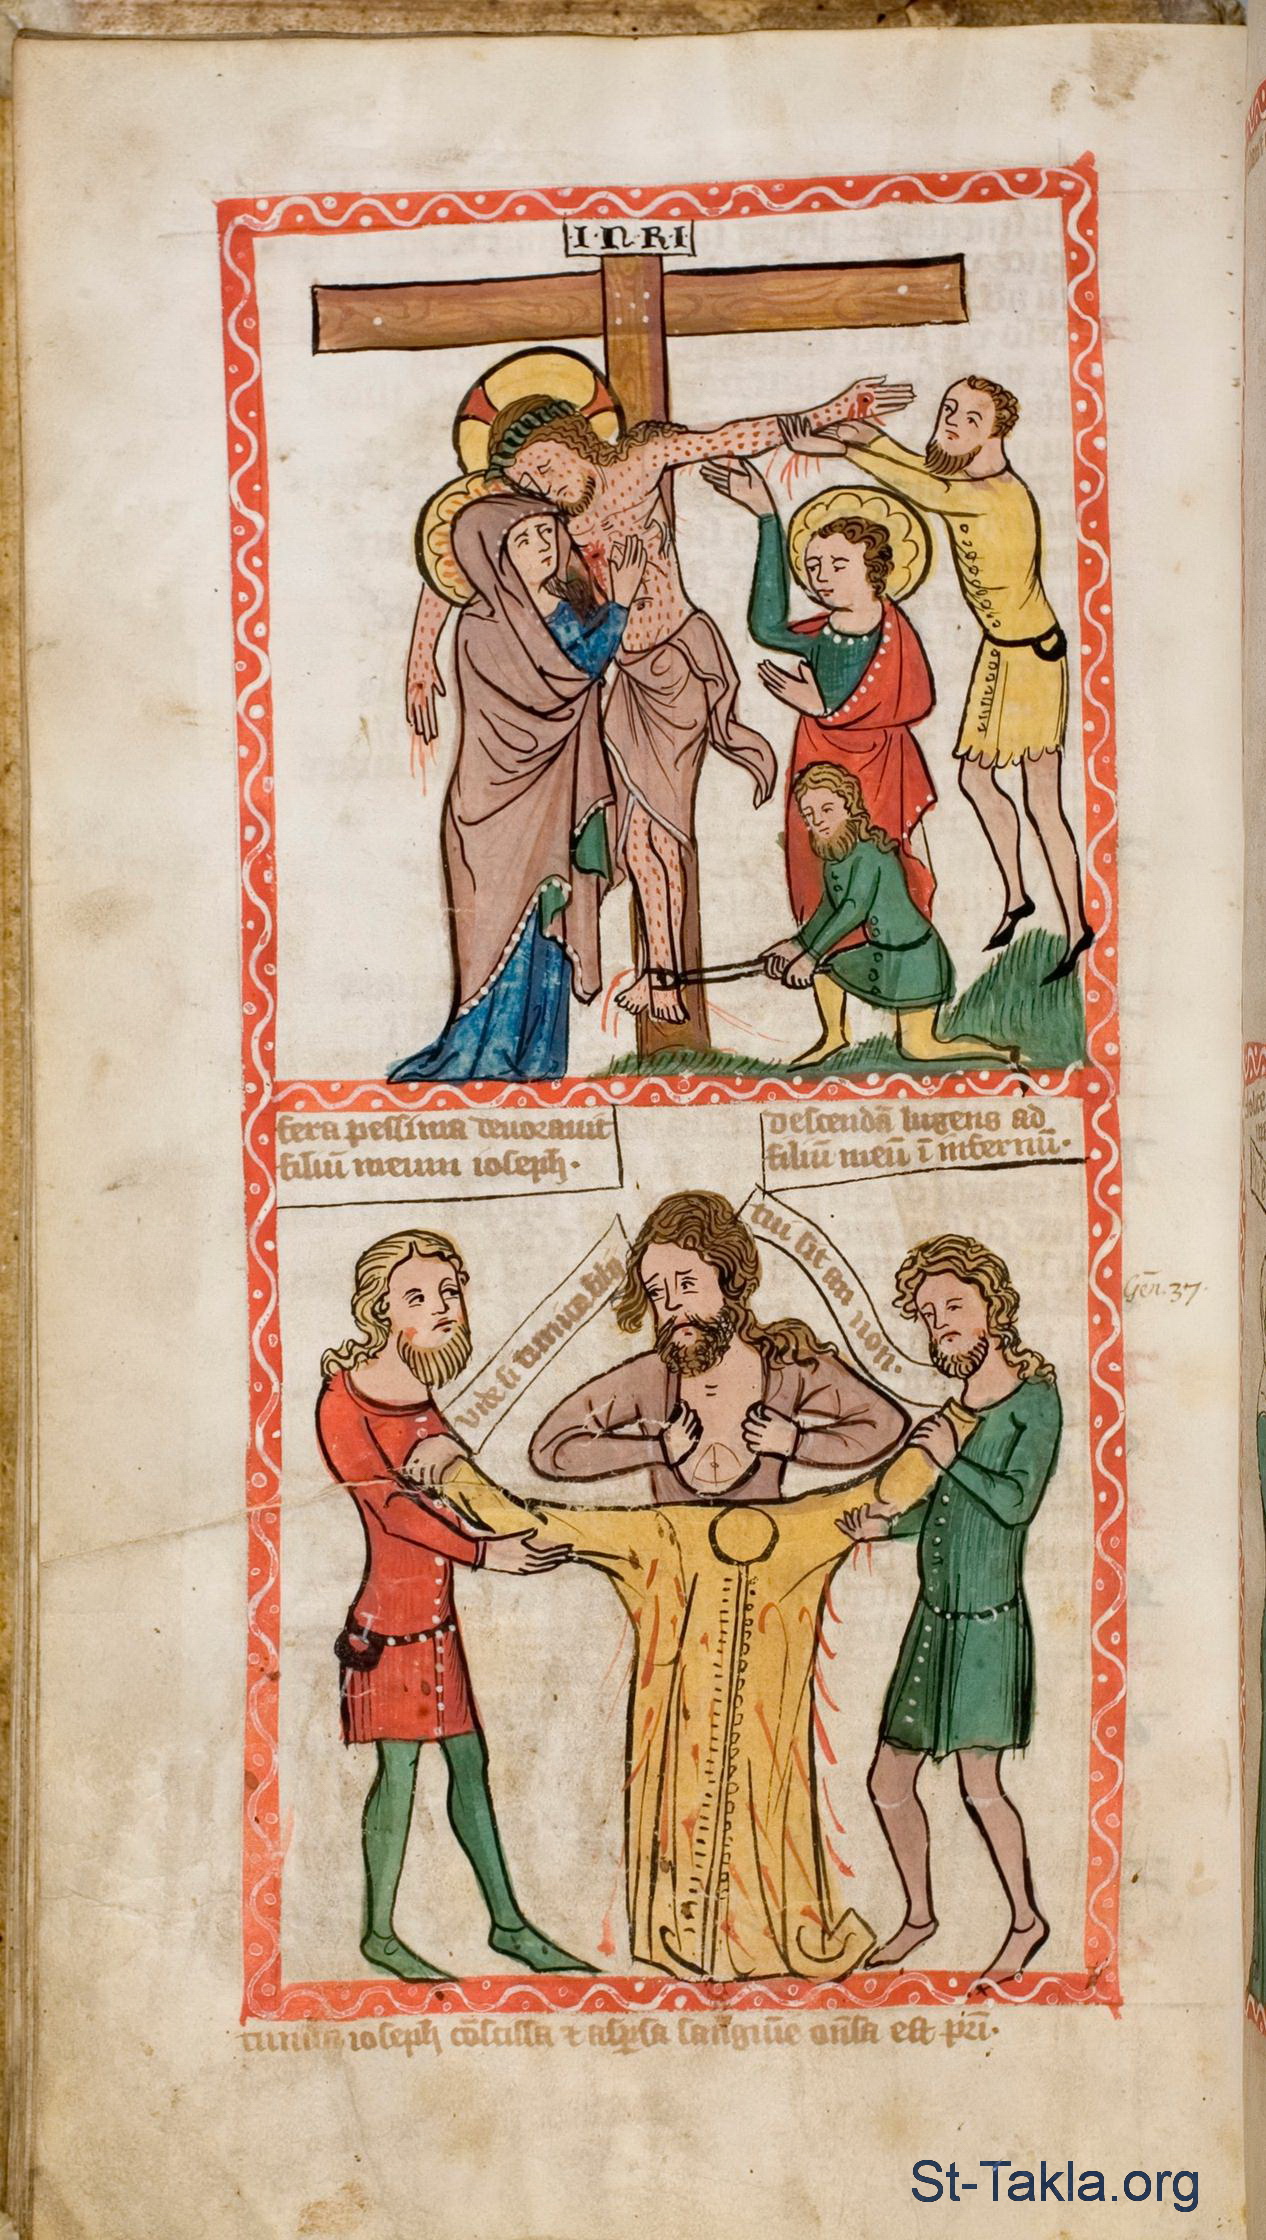 I·N·R·I
fera pessima deuorauit
filiū meum ioseph·
descendā lugens ad
filiū meū ī infernū·
vide si tunica filij
tui sit an non·
Gēn. 37·
tunica ioseph cōscissa ⁊ asp̄sa sanguīe
St-Takla.org